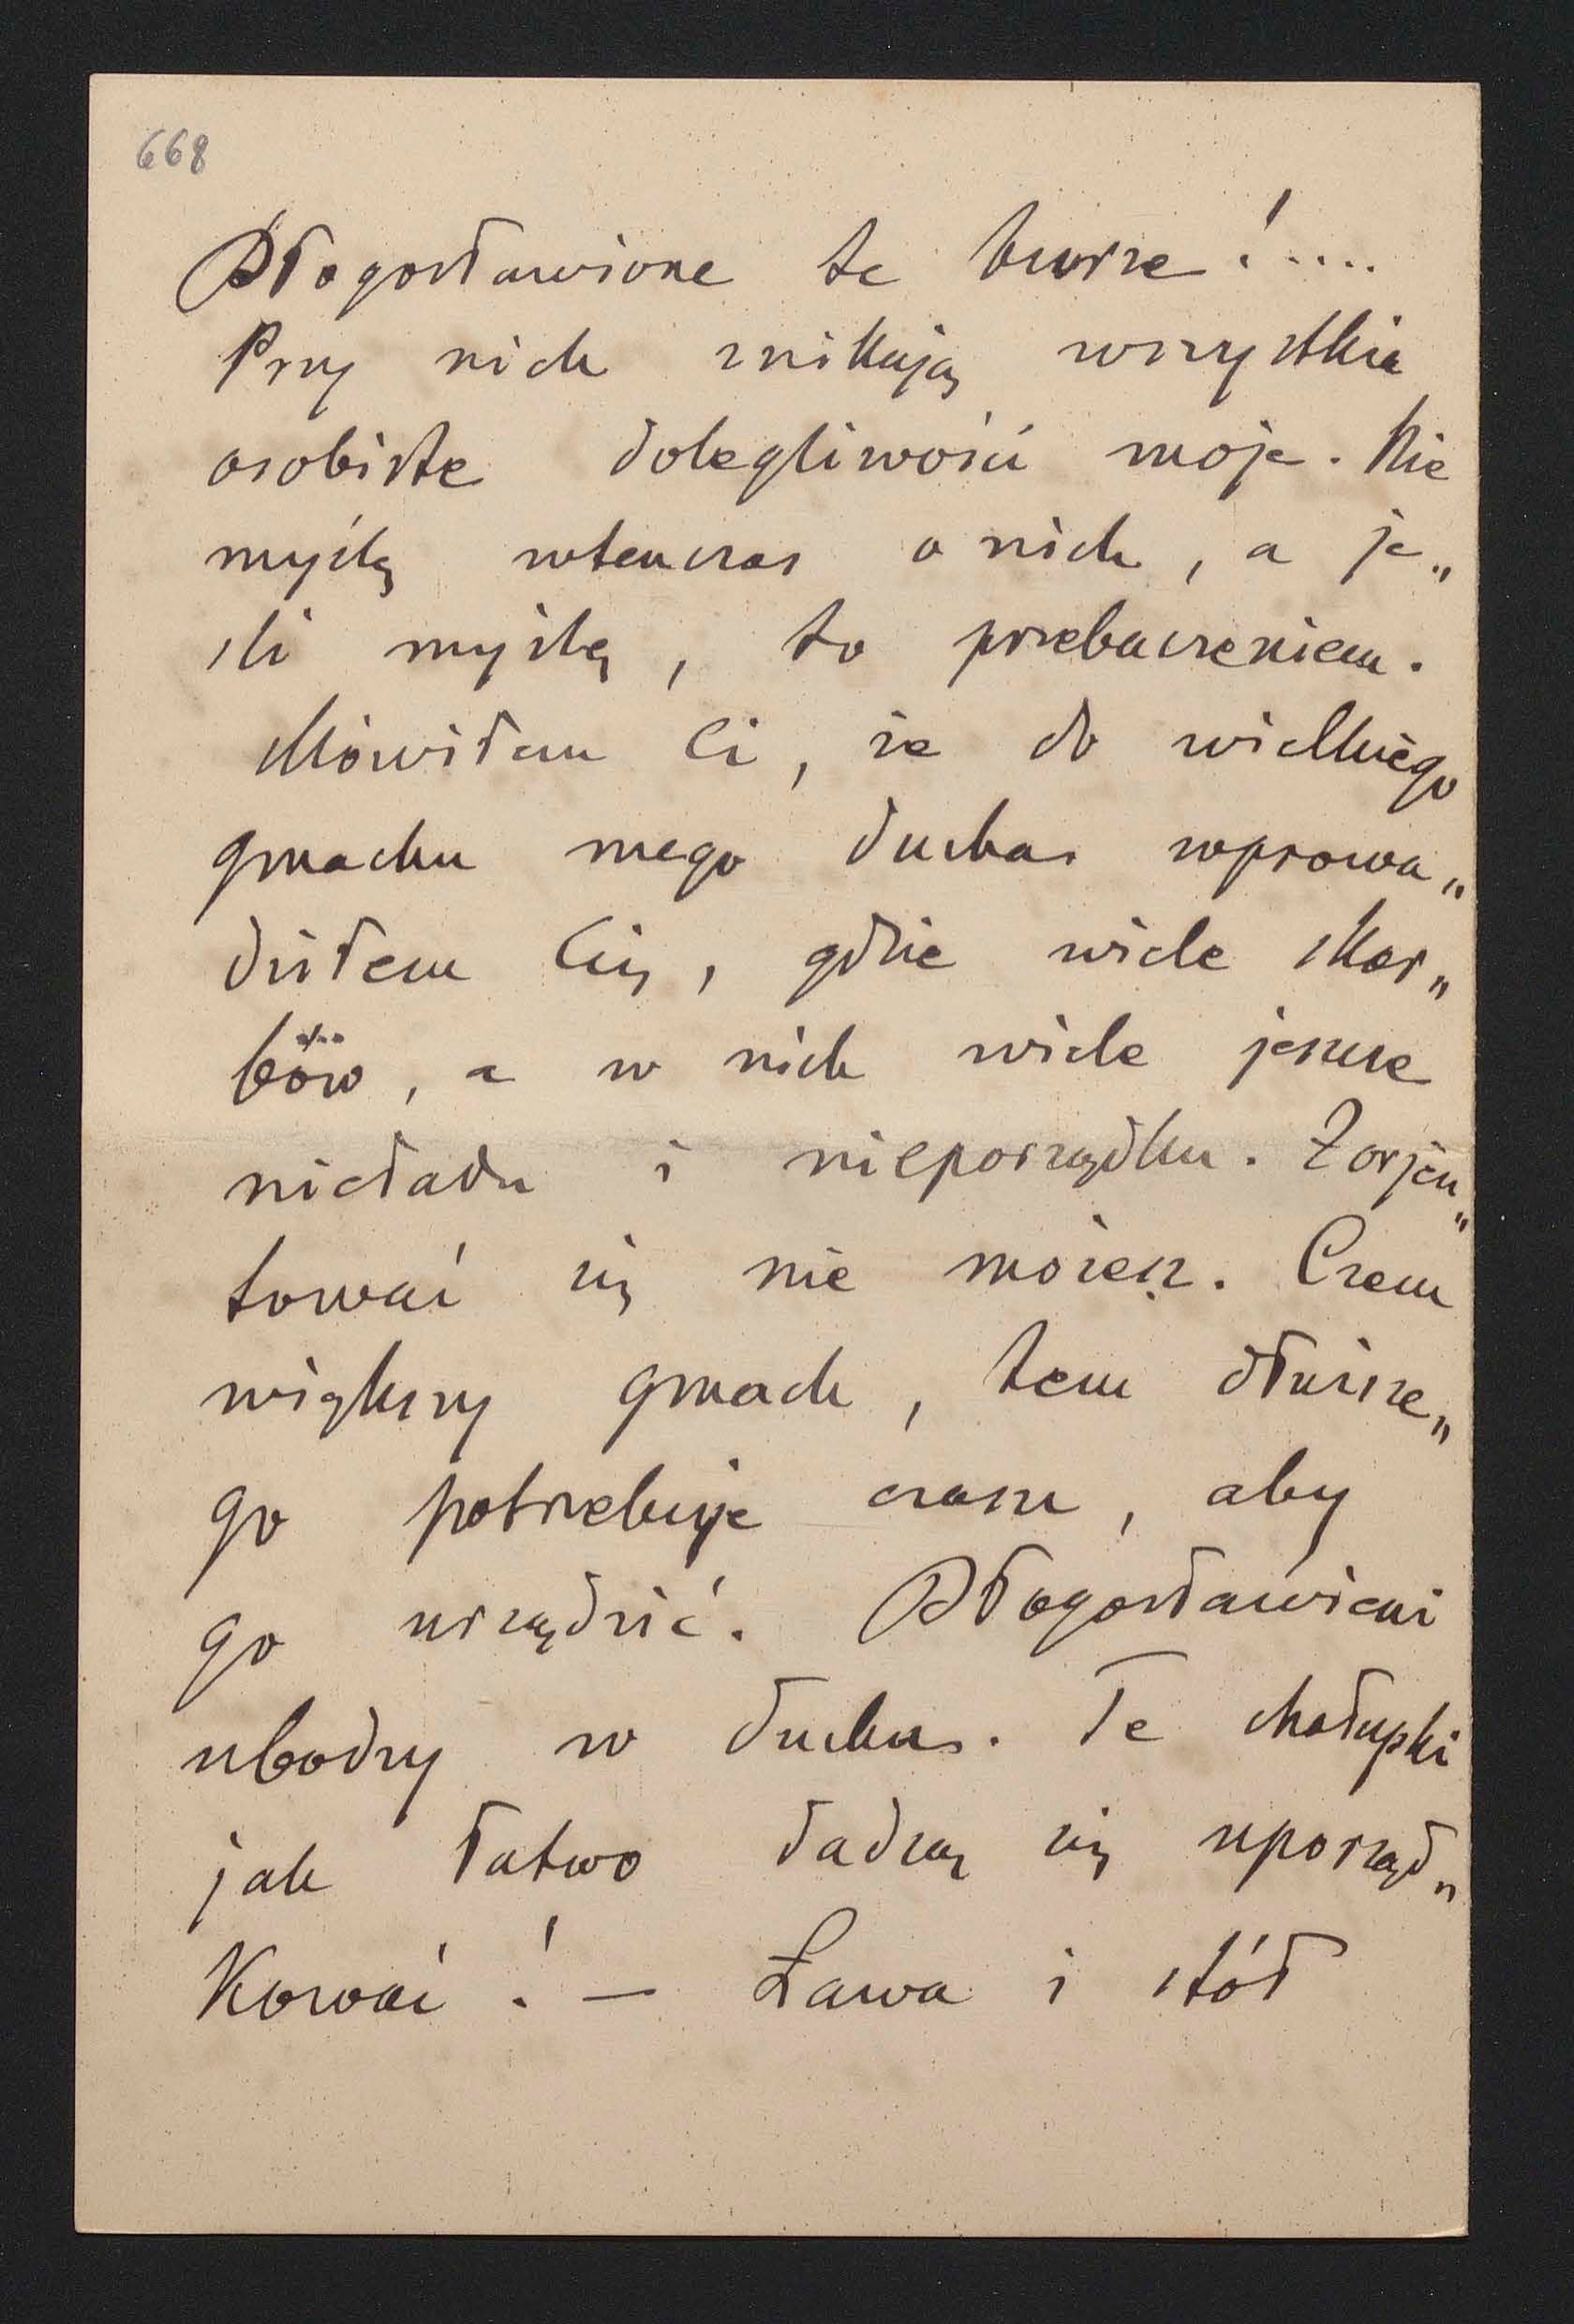 668
Błogosławione te burze!....
Przy nich znikają wszystkie
osobiste dolegliwości moje. Nie
myślę wtenczas o nich, a je„
śli myślę, to przebaczeniem.
Mówiłem Ci, że do wielkiego
gmachu mego ducha wprowa„
dziłem Cię, gdzie wiele skar„
bów, a w nich wiele jeszcze
nieładu i nieporządku. Zorjen„
tować się nie możesz. Czem
większy gmach, tem dłuższe„
go potrzebuje czasu, aby
go urządzić. Błogosławieni
ubodzy w duchu. Te chałupki
jak łatwo dadzą się uporząd„
kować! — Ława i stół